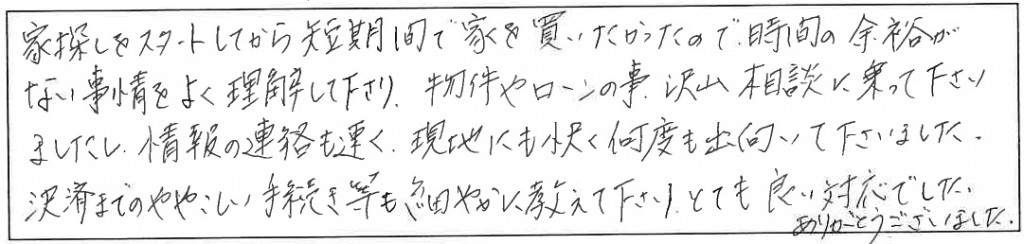 家探しをスタートしてから短期間で家を買いたかったので、時間の余裕が
ない事情をよく理解して下さり、物件やローンの事、沢山相談に乗って下さい
ましたし、情報の連絡も速く、現地にも快く何度も出向いて下さいました。
決済までのややこしい手続き等も細やかに教えて下さり、とても良い対応でした。
ありがとうございました。